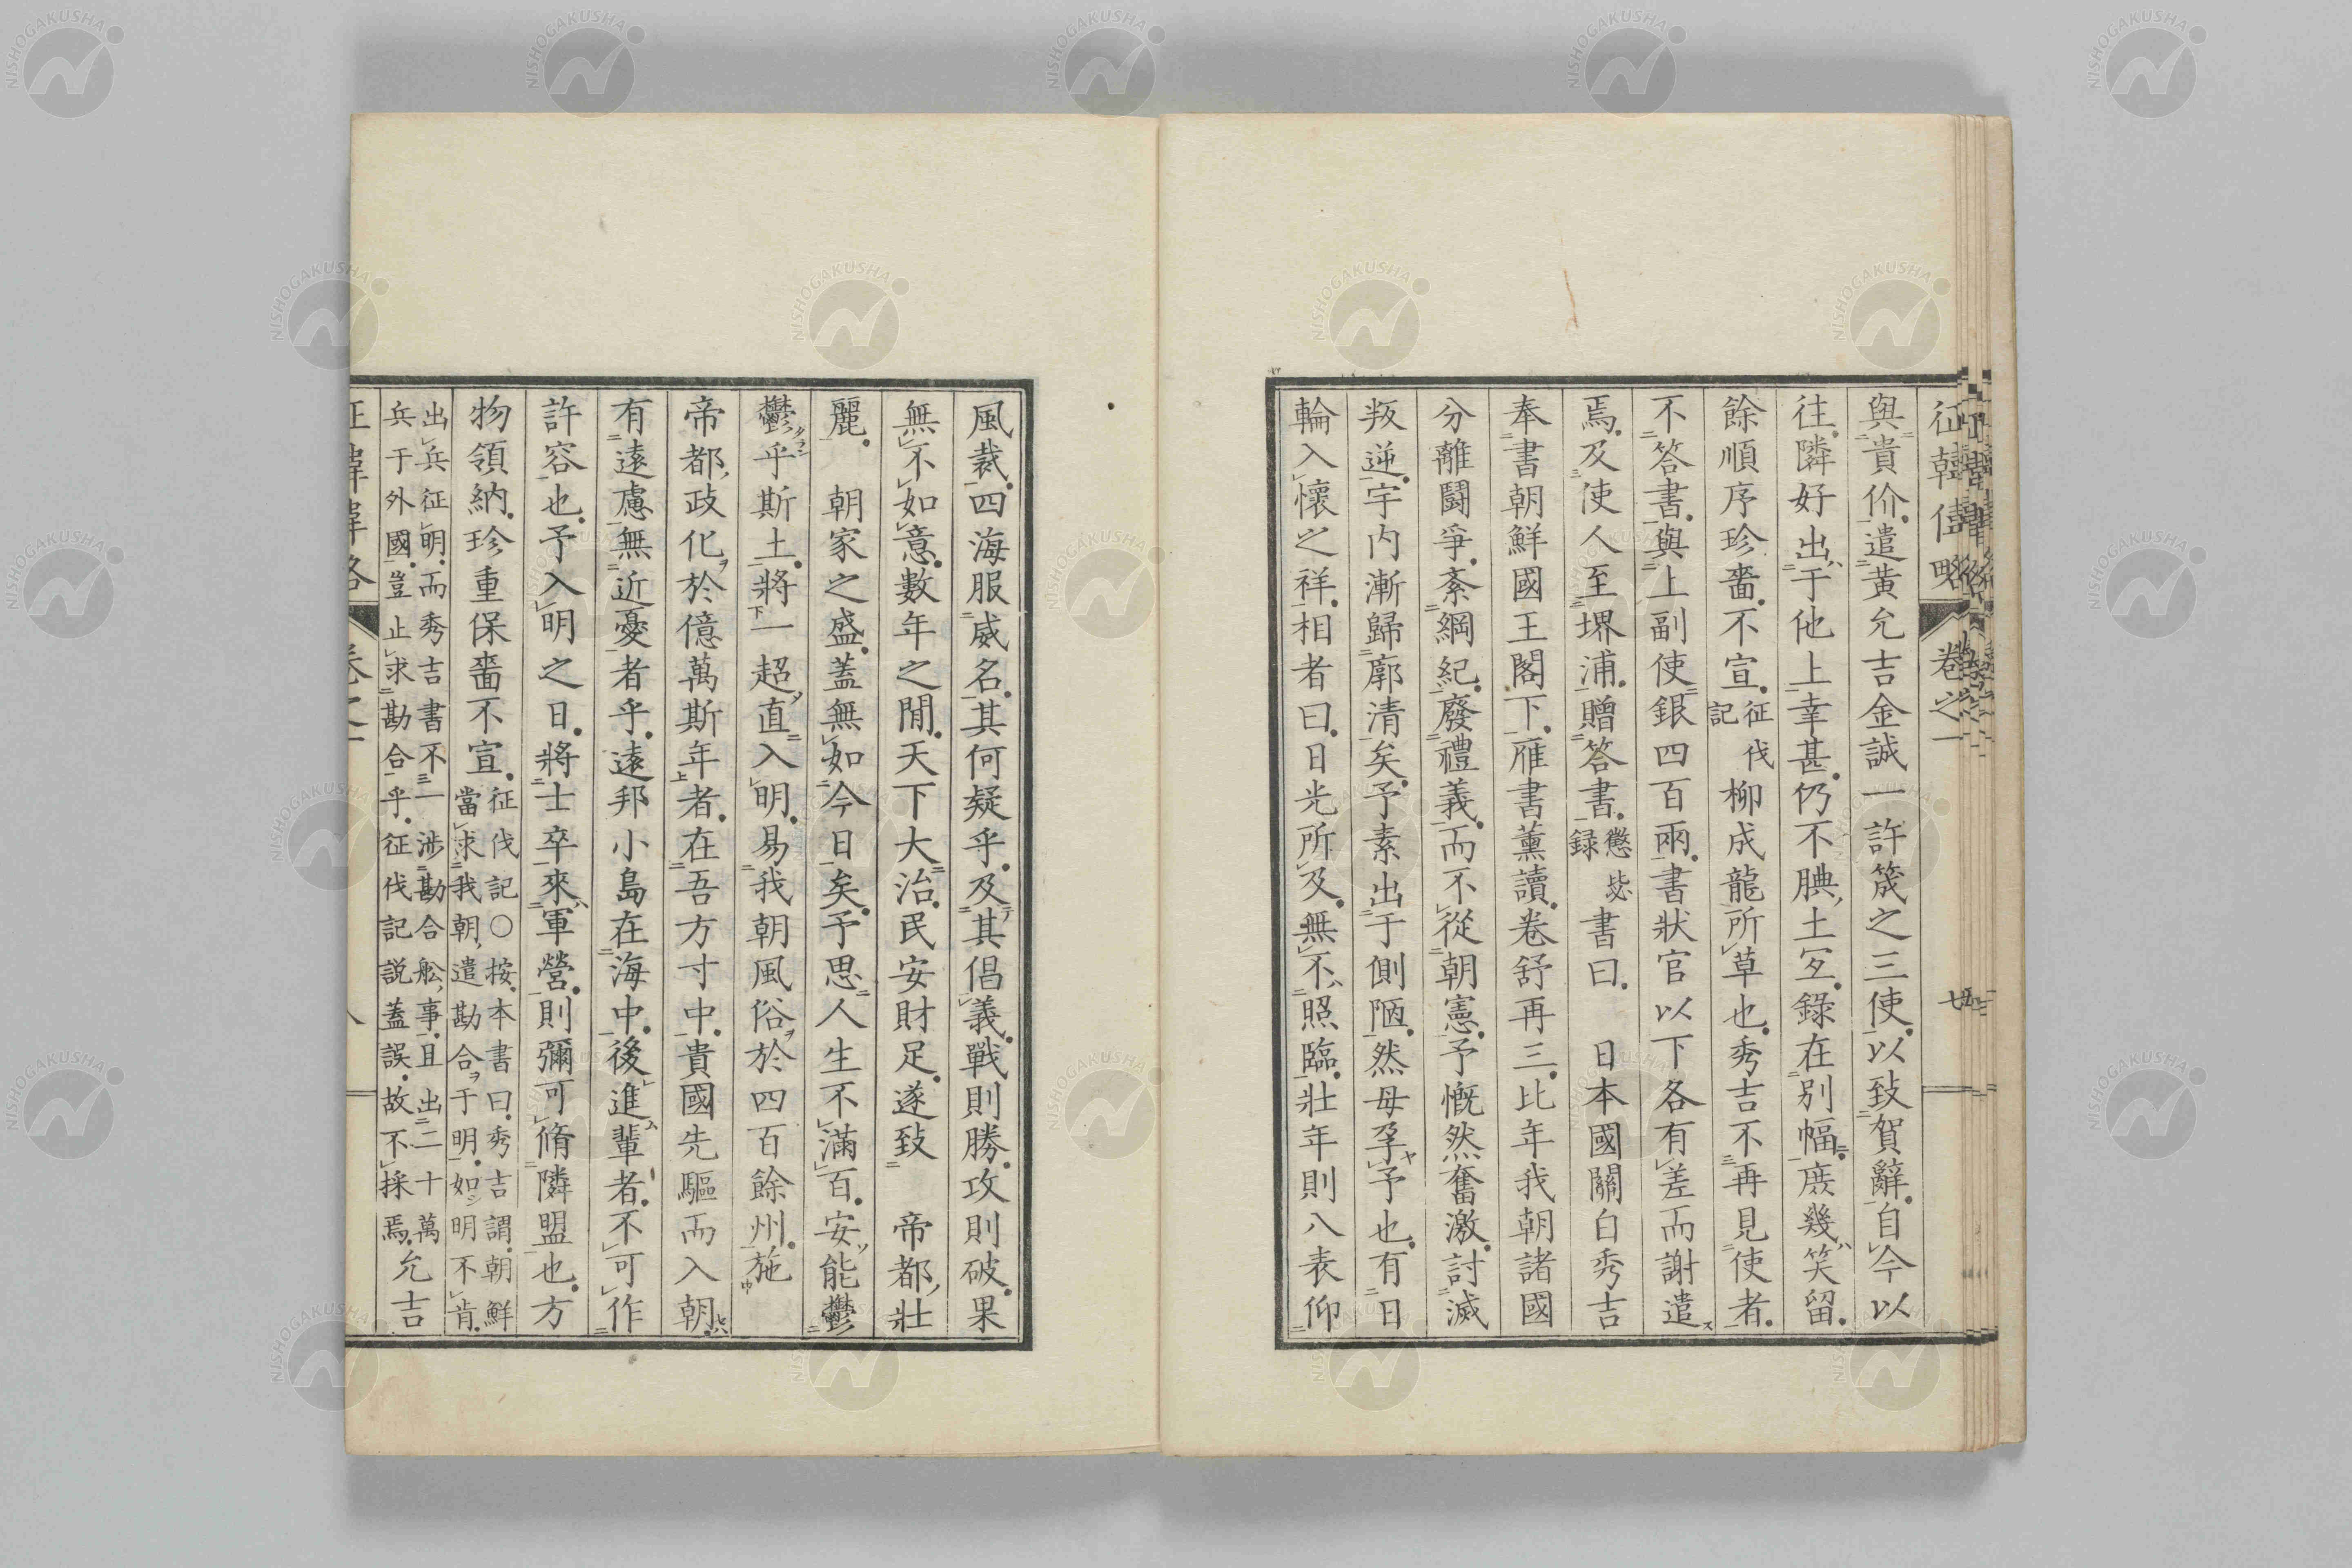 征韓偉略 卷之一 七
與貴价遣黃允吉金誠一許筬之三使以致賀辭自今以
往隣好出于他上幸甚仍不腆土宜錄在別幅庶幾笑留
餘順序珍嗇不宣征伐記柳成龍所草也秀吉不再見使者
不答書與上副使銀四百兩書狀官以下各有差而謝遣
焉及使人至堺浦贈答書懲毖録書曰 日本國關白秀吉
奉書朝鮮國王閣下雁書薰讀卷舒再三比年我朝諸國
分離鬪爭紊綱紀廢禮義而不從朝憲予慨然奮激討滅
叛逆宇内漸歸廓清矣予素出于側陋然母孕予也有日
輪入懷之祥相者曰日光所及無不照臨壯年則八表仰
風裁四海服威名其何疑乎及其倡義戰則勝攻則破果
無不如意數年之間天下大治民安財足遂致 帝都壯
麗 朝家之盛蓋無如今日矣予思人生不滿百安能鬱
鬱乎斯土將一超直入明易我朝風俗於四百餘州施
帝都政化於億萬斯年者在吾方寸中貴國先驅而入朝
有遠慮無近憂者乎遠邦小島在海中後進輩者不可作
許容也予入明之日將士卒來軍營則彌可脩隣盟也方
物領納珍重保嗇不宣征伐記〇按本書曰秀吉謂朝鮮
當求我朝遣勘合于明如明不肯
出兵征明而秀吉書不一涉勘合舩事且出二十萬
兵于外國豈止求勘合乎征伐記説蓋誤故不採焉允吉